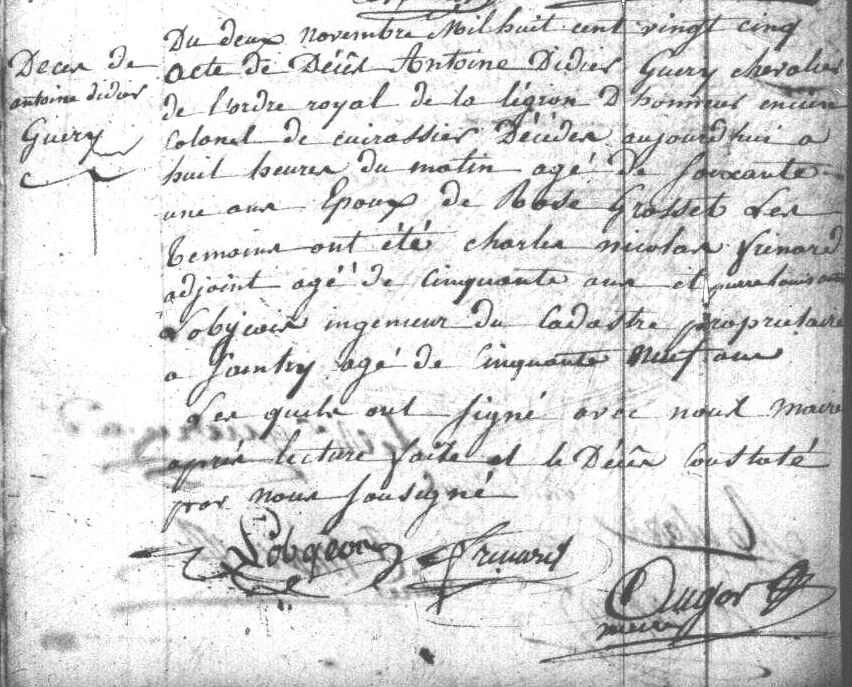 Du deux novembre Mil huit cent vingt cinq
Deces de
antoine didier
Guery
acte de Décès Antoine Didier Guery chevalier
de l'ordre royal de la légion D honneur encien
Colonel de cuirassier Décéder aujourd'hui a
huit heures du matin agé de soixante
une ans Epoux de Rose Grosset Les
temoins ont été charles nicolas frinard
adjoint agé de Cinquante ans et pierre louis
Lobjeois ingenieur du Cadastre proprietaire
a Saintry agé de Cinquante Neuf ans
Les quels ont signé avec nous maire
après lecture faite et le Décès Constaté
par nous soussigné
Lobgeois frinard
Dugor
maire